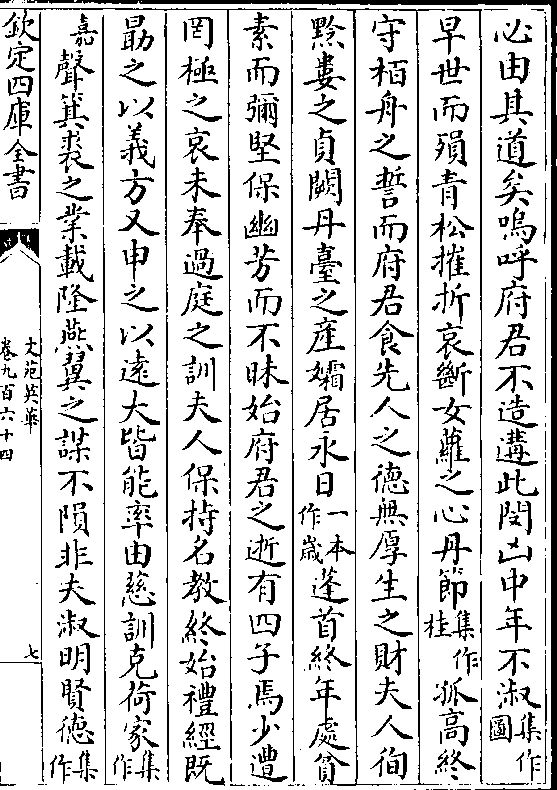 心由其道矣嗚呼府君不造遘此閔凶中年不淑集作圖
早世而殞青松摧折哀斷女蘿之心丹節集作桂孤高終
守栢舟之誓而府君食先人之德無厚生之財夫人徇
黔婁之貞闕丹臺之産孀居永日一本作歲蓬首終年處貧
素而彌堅保幽芳而不昧始府君之逝有四子焉少遭
罔極之哀未奉過庭之訓夫人保持名教終始禮經既
勗之以義方又申之以遠大皆能率由慈訓克荷家集作
嘉聲箕裘之業載隆燕翼之謀不隕非夫淑明賢德集作
欽定四庫全書
文苑英華
卷九百六十四
七